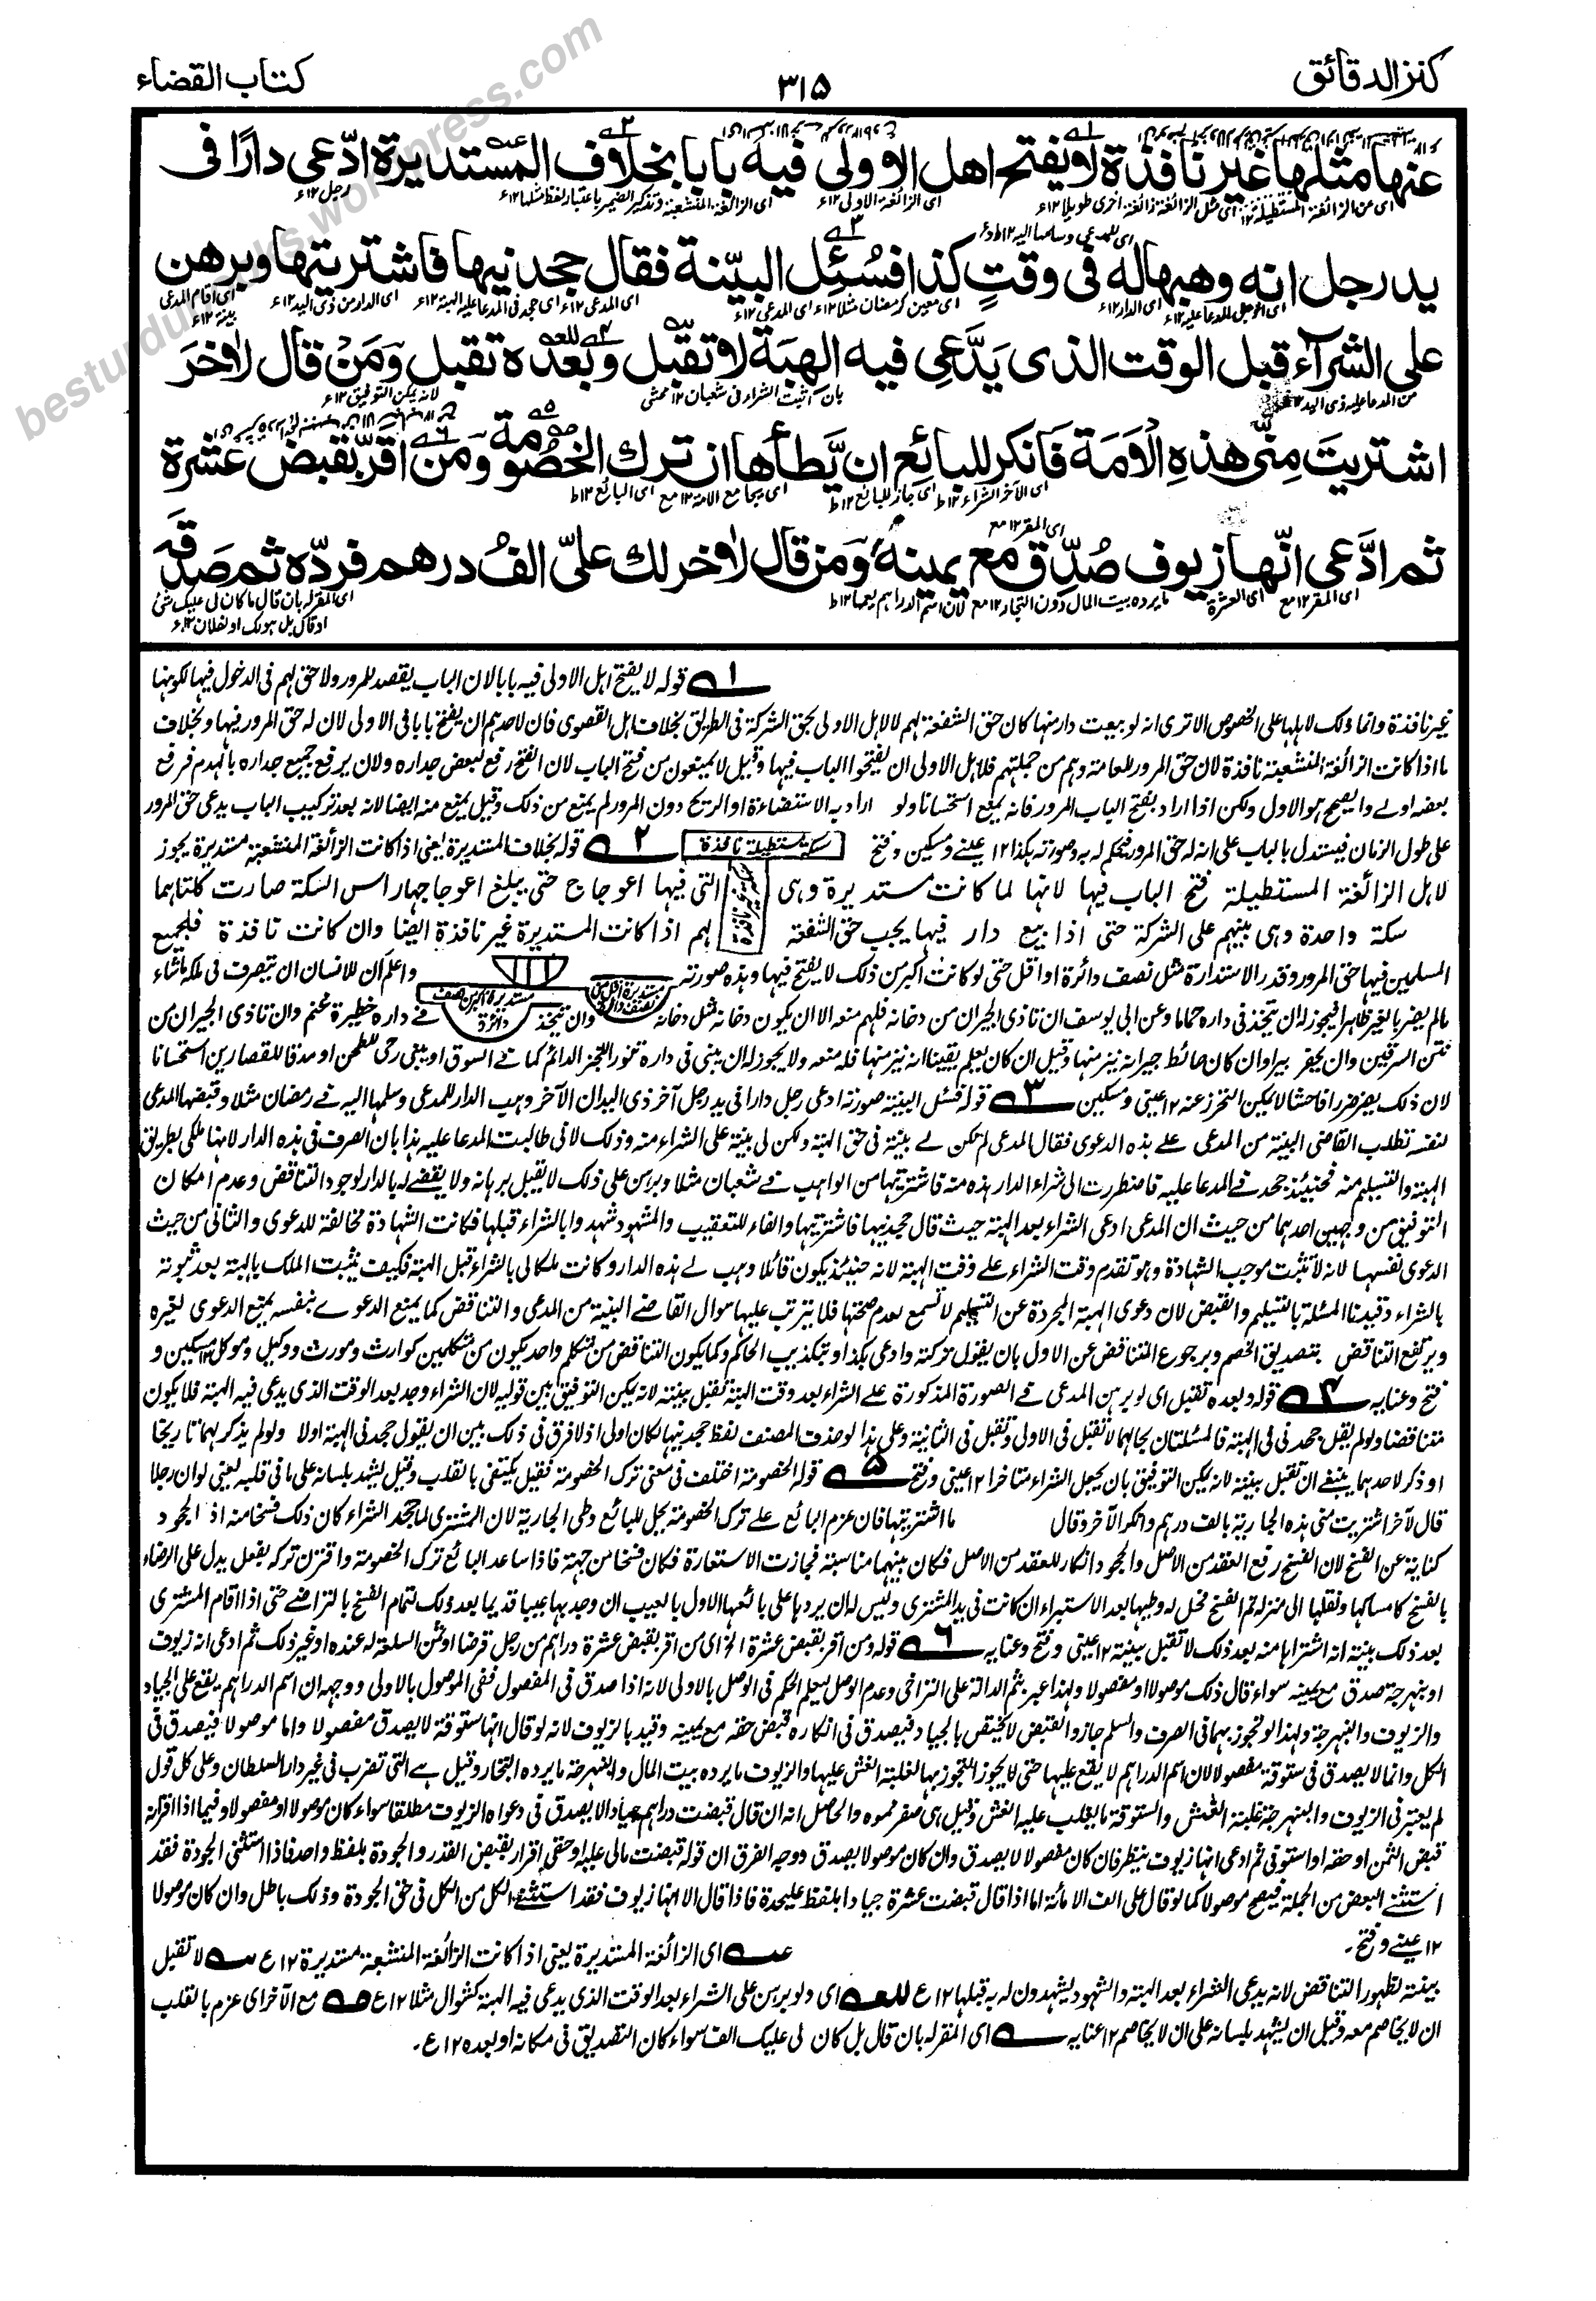 كنز الدقائق
٣١٥
كتاب القضاء
عنها مثلها غير نافذة لا يفتح اهل الاولى فيه بابا بخلاف المستديرة ادّعى دارًا فى
اى عن الزائغة المستطيلة اى مثل الزائغة زائغة اخرى طويلة ١٢ع اى الزائغة الاولى ١٢ع اى الزائغة المنشعبة وتذكير الضمير باعتبار لفظ مثلها ١٢ع رجل ١٢ع
اى للمدعى وسلمها اليه ١٢ط وع
يد رجل انه وهبها له فى وقتٍ كذا فسُئِل البيّنة فقال جحدنيها فاشتريتها وبرهن
اى الرجل المدعا عليه ١٢ع اى الدار ١٢ع اى معين كرمضان مثلا ١٢ع اى المدعى ١٢ع اى المدعى ١٢ع اى جحد فى المدعا عليه الهبة ١٢ع اى الدار من ذى اليد ١٢ع اى اقام المدعى بينة ١٢ع
على الشرآء قبل الوقت الذى يدَّعى فيه الهبَة لا تقبل وبعده تقبل ومَنْ قال لاٰخرَ
من المدعا عليه ذى اليد ١٢ بان اثبت الشراء فى شعبان ١٢ محشى لانه يمكن التوفيق ١٢ع
اشتريتَ مِنّى هذهِ الْاَمَة فَانكر للبائِعِ ان يَّطأَها ان ترك الخصُومة ومَن اقرّ بقبض عشرة
اى الآخر الشراء ١٢ط اى جاز للبائع ١٢ط اى يجامع الامة ١٢مع اى البائع ١٢ط
اى المقر ١٢مع
ثم ادَّعى انّها زيوف صُدِّق مع يمينه ومَن قال لاٰخر لك علىّ الفُ درهم فردّه ثم صَدقَه
اى المقر ١٢مع اى العشرة ما يرده بيت المال دون التجار ١٢مع لان اسم الدراهم يعمها ١٢ط اى المقر له بان قال ما كان لى عليك شئ
او قال بل هو لك او لفلان ١٢ع
١ قوله لا يفتح اهل الاولى فيه بابا لان الباب يقصد للمرور ولا حق لهم فى الدخول فيها لكونها
غير نافذة وانما ذلك لاهلها على الخصوص الا ترى انه لو بيعت دار منها كان حق الشفعة لهم لا لاهل الاولى بحق الشركة فى الطريق بخلاف اهل القصوى فان لاحدهم ان يفتح بابا فى الاولى لان له حق المرور فيها وبخلاف
ما اذا كانت الزائغة المنشعبة نافذة لان حق المرور للعامة وهم من جملتهم فلاهل الاولى ان يفتحوا الباب فيها وقيل لا يمنعون من فتح الباب لان الفتح رفع لبعض جداره ولان يرفع جميع جداره بالهدم فرفع
بعضه اولى والصحيح هو الاول ولكن اذا اراد بفتح الباب المرور فانه يمنع استحسانا ولو اراد به الاستضاءة او الريح دون المرور لم يمنع من ذلك وقيل يمنع منه ايضا لانه بعد تركيب الباب يدعى حق المرور
على طول الزمان فيستدل بالباب على انه له حق المرور فيحكم له به وصورته هكذا ١٢ عينى ومسكين وفتح سكة مستطيلة نافذة ٢ قوله بخلاف المستديرة يعنى اذا كانت الزائغة المنشعبة مستديرة يجوز
لاهل الزائغة المستطيلة فتح الباب فيها لانها لما كانت مستديرة وهى التى فيها اعوجاج حتى بلغ اعوجاجها راس السكة صارت كلتاهما
سكة واحدة وهى بينهم على الشركة حتى اذا بيع دار فيها يجب حق الشفعة لهم اذا كانت المستديرة غير نافذة ايضا وان كانت نافذة فلجميع
المسلمين فيها حق المرور وقدر الاستدارة مثل نصف دائرة او اقل حتى لو كانت اكبر من ذلك لا يفتح فيها وهذه صورته واعلم ان للانسان ان يتصرف فى ملكه ماشاء
مستديرة اقل من نصف دائرة
مستديرة اكبر من نصف دائرة
مالم يضر بالغير ظاهرا فيجوز له ان يتخذ فى داره حماما وعن ابى يوسف ان تاذى الجيران من دخانه فلهم منعه الا ان يكون دخانه مثل دخانه وان يتخذ فى داره حظيرة غنم وان تاذى الجيران من
نتن السرقين وان يحفر بيرا وان كان حائط جيرانه ينز منها وقيل ان كان يعلم يقينا انه ينز منها فله منعه ولا يجوز له ان يبنى فى داره تنور الخبز الدائم كما فى السوق او يبنى رحى للطحن او مدقا للقصارين استحسانا
لان ذلك يضر ضررا فاحشا لا يمكن التحرز عنه ١٢ عينى ومسكين ٣ قوله فسئل البينة صورته ادعى رجل دارا فى يد رجل آخر ذى اليد ان الآخر وهب الدار للمدعى وسلمها اليه فى رمضان مثلا وقبضها المدعى
لنفسه تطلب القاضى البينة من المدعى على هذه الدعوى فقال المدعى لم تكن لى بينة فى حق الهبة ولكن لى بينة على الشراء منه وذلك لانى طالبت المدعا عليه هذا بان اتصرف فى هذه الدار لانها ملكى بطريق
الهبة والتسليم منه فحينئذ جحد فى المدعا عليه فاضطررت الى شراء الدار هذه منه فاشتريتها من الواهب فى شعبان مثلا وبرهن على ذلك لا يقبل برهانه ولا يقضى له بالدار لوجود التناقض وعدم امكان
التوفيق من وجهين احدهما من حيث ان المدعى ادعى الشراء بعد الهبة حيث قال جحدنيها فاشتريتها والفاء للتعقيب والمشهود شهدوا بالشراء قبلها فكانت الشهادة مخالفة للدعوى والثانى من حيث
الدعوى نفسها لانه لا تثبت موجب الشهادة وهو تقدم وقت الشراء على وقت الهبة لانه حينئذ يكون قائلا وهب لى هذه الدار وكانت ملكا لى بالشراء قبل الهبة فكيف يثبت الملك بالهبة بعد ثبوته
بالشراء وقيدنا المسئلة بالتسليم والقبض لان دعوى الهبة المجردة عن التسليم لا تسمع لعدم صحتها فلا يترتب عليها سوال القاضى البينة من المدعى والتناقض كما يمنع الدعوى بنفسه يمنع الدعوى لغيره
ويرتفع التناقض بتصديق الخصم وبرجوع التناقض عن الاول بان يقول تركته وادعى بكذا وبتكذيب الحاكم وكما يكون التناقض من متكلم واحد يكون من متكلمين كوارث ومورث ووكيل وموكل ١٢ مسكين و
فتح وعنايه ٤ قوله وبعده تقبل اى لو برهن المدعى فى الصورة المذكورة على الشراء بعد وقت الهبة تقبل بينته لانه يمكن التوفيق بين قوليه لان الشراء وجد بعد الوقت الذى يدعى فيه الهبة فلا يكون
متناقضا ولو لم يقل جحدنى فى الهبة فالمسئلتان بحالهما لا تقبل فى الاولى وتقبل فى الثانية وعلى هذا لو حذف المصنف لفظ جحدنيها لكان اولى اذ لا فرق فى ذلك بين ان يقول جحدنى الهبة اولا ولو لم يذكر لهما تاريخا
او ذكر لاحدهما ينبغى ان تقبل بينته لانه يمكن التوفيق بان يجعل الشراء متاخرا ١٢ عينى وفتح ٥ قوله الخصومة اختلف فى معنى ترك الخصومة فقيل يكتفى بالقلب وقيل يشهد بلسانه على ما فى قلبه يعنى لو ان رجلا
قال لآخر اشتريت منى هذه الجارية بالف درهم وانكر الآخر وقال ما اشتريتها فان عزم البائع على ترك الخصومة يحل للبائع وطى الجارية لان المشترى لما جحد الشراء كان ذلك فسخا منه اذ الجحود
كناية عن الفسخ لان الفسخ رفع العقد من الاصل والجحود انكار للعقد من الاصل فكان بينهما مناسبة فجازت الاستعارة فكان فسخا من جهته فاذا ساعد البائع ترك الخصومة واقترن تركه بفعل يدل على الرضاء
بالفسخ كامساكها ونقلها الى منزله تم الفسخ فحل له وطيها بعد الاستبراء ان كانت فى يد المشترى وليس له ان يردها على بائعها الاول بالعيب ان وجد بها عيبا قديما بعد ذلك لتمام الفسخ بالتراضى حتى اذا اقام المشترى
بعد ذلك بينة انه اشتراها منه بعد ذلك لا تقبل بينة ١٢ عينى وفتح وعنايه ٦ قوله ومن اقر بقبض عشرة الخ اى من اقر بقبض عشرة دراهم من رجل قرضا او ثمن السلعة له عنده او غير ذلك ثم ادعى انه زيوف
او بنهرجة صدق مع يمينه سواء قال ذلك موصولا او مفصولا ولهذا عبر بثم الدالة على التراخى وعدم الوصل ليعلم الحكم فى الوصل بالاولى لانه اذا صدق فى المفصول ففى الموصول بالاولى ووجهه ان اسم الدراهم يقع على الجياد
والزيوف والبنهرجة ولهذا لو تجوز بهما فى الصرف والسلم جاز والقبض لا يختص بالجياد فيصدق فى انكاره قبض حقه مع يمينه وقيد بالزيوف لانه لو قال انها ستوقة لا يصدق مفصولا واما موصولا فيصدق فى
الكل وانما لا يصدق فى ستوقة مفصولا لان اسم الدراهم لا يقع عليها حتى لا يجوز التجوز بها لغلبة الغش عليها والزيوف ما يرده بيت المال والبنهرجة ما يرده التجار وقيل هى التى تضرب فى غير دار السلطان وعلى كل قول
لم يعتبر فى الزيوف والبنهرجة غلبة الغش والستوقة ما يغلب عليه الغش وقيل هى صفر مموه والحاصل انه ان قال قبضت دراهم جيادا لا يصدق فى دعواه الزيوف مطلقا سواء كان موصولا او مفصولا وفيما اذا اقر انه
قبض الثمن او حقه او استوفى ثم ادعى انها زيوف ينظر فان كان مفصولا لا يصدق وان كان موصولا يصدق ووجه الفرق ان قوله قبضت مالى عليه او حقى اقرار بقبض القدر والجودة بلفظ واحد فاذا استثنى الجودة فقد
استثنى البعض من الجملة فيصح موصولا كما لو قال على الف الا مائة اما اذا قال قبضت عشرة جيادا بلفظ عليحدة فاذا قال الا انها زيوف فقد استثنى الكل من الكل فى حق الجودة وذلك باطل وان كان موصولا
١٢ عينى وفتح ۔
عه اى الزائغة المستديرة يعنى اذا كانت الزائغة المنشعبة مستديرة ١٢ ع سه لا تقبل
بينته لظهور التناقض لانه يدعى الشراء بعد الهبة والشهود يشهدون له به قبلها ١٢ ع للعه اى ولو برهن على الشراء بعد الوقت الذى يدعى فيه الهبة كشوال مثلا ١٢ ع صه مع الآخر اى عزم بالقلب
ان لا يخاصم معه وقيل ان يشهد بلسانه على ان لا يخاصم ١٢ عنايه سه اى المقر له بان قال بل كان لى عليك الف سواء كان التصديق فى مكانه او بعده ١٢ ع ۔
besturdubooks.wordpress.com